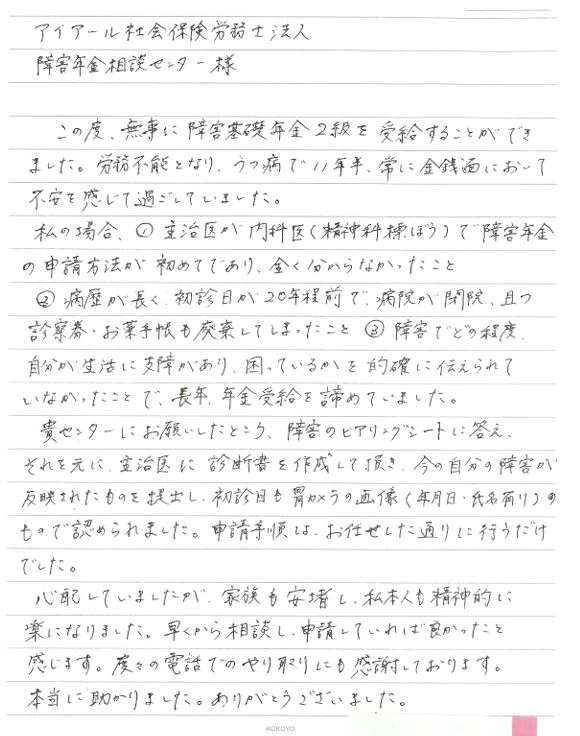 アイアール社会保険労務士法人
障害年金相談センター様
この度、無事に障害基礎年金2級を受給することができ
ました。労務不能となり、うつ病で11年半、常に金銭面において
不安を感じて過ごしていました。
私の場合、①主治医が内科医(精神科標ぼう)で障害年金
の申請方法が初めてであり、全く分からなかったこと
②病歴が長く、初診日が20年程前で、病院が閉院、且つ
診察券・お薬手帳も廃棄してしまったこと ③障害でどの程度、
自分が生活に支障があり、困っているかを的確に伝えられて
いなかったことで、長年、年金受給を諦めていました。
貴センターにお願いしたところ、障害のヒアリングシートに答え、
それを元に、主治医に診断書を作成して頂き、今の自分の障害が
反映されたものを提出し、初診日も胃カメラの画像(年月日・氏名有り)の
もので認められました。申請手順は、お任せした通りに行うだけ
でした。
心配していましたが、家族も安堵し、私本人も精神的に
楽になりました。早くから相談し、申請していれば良かったと
感じます。度々の電話でのやり取りにも感謝しております。
本当に助かりました。ありがとうございました。
KOKUYO